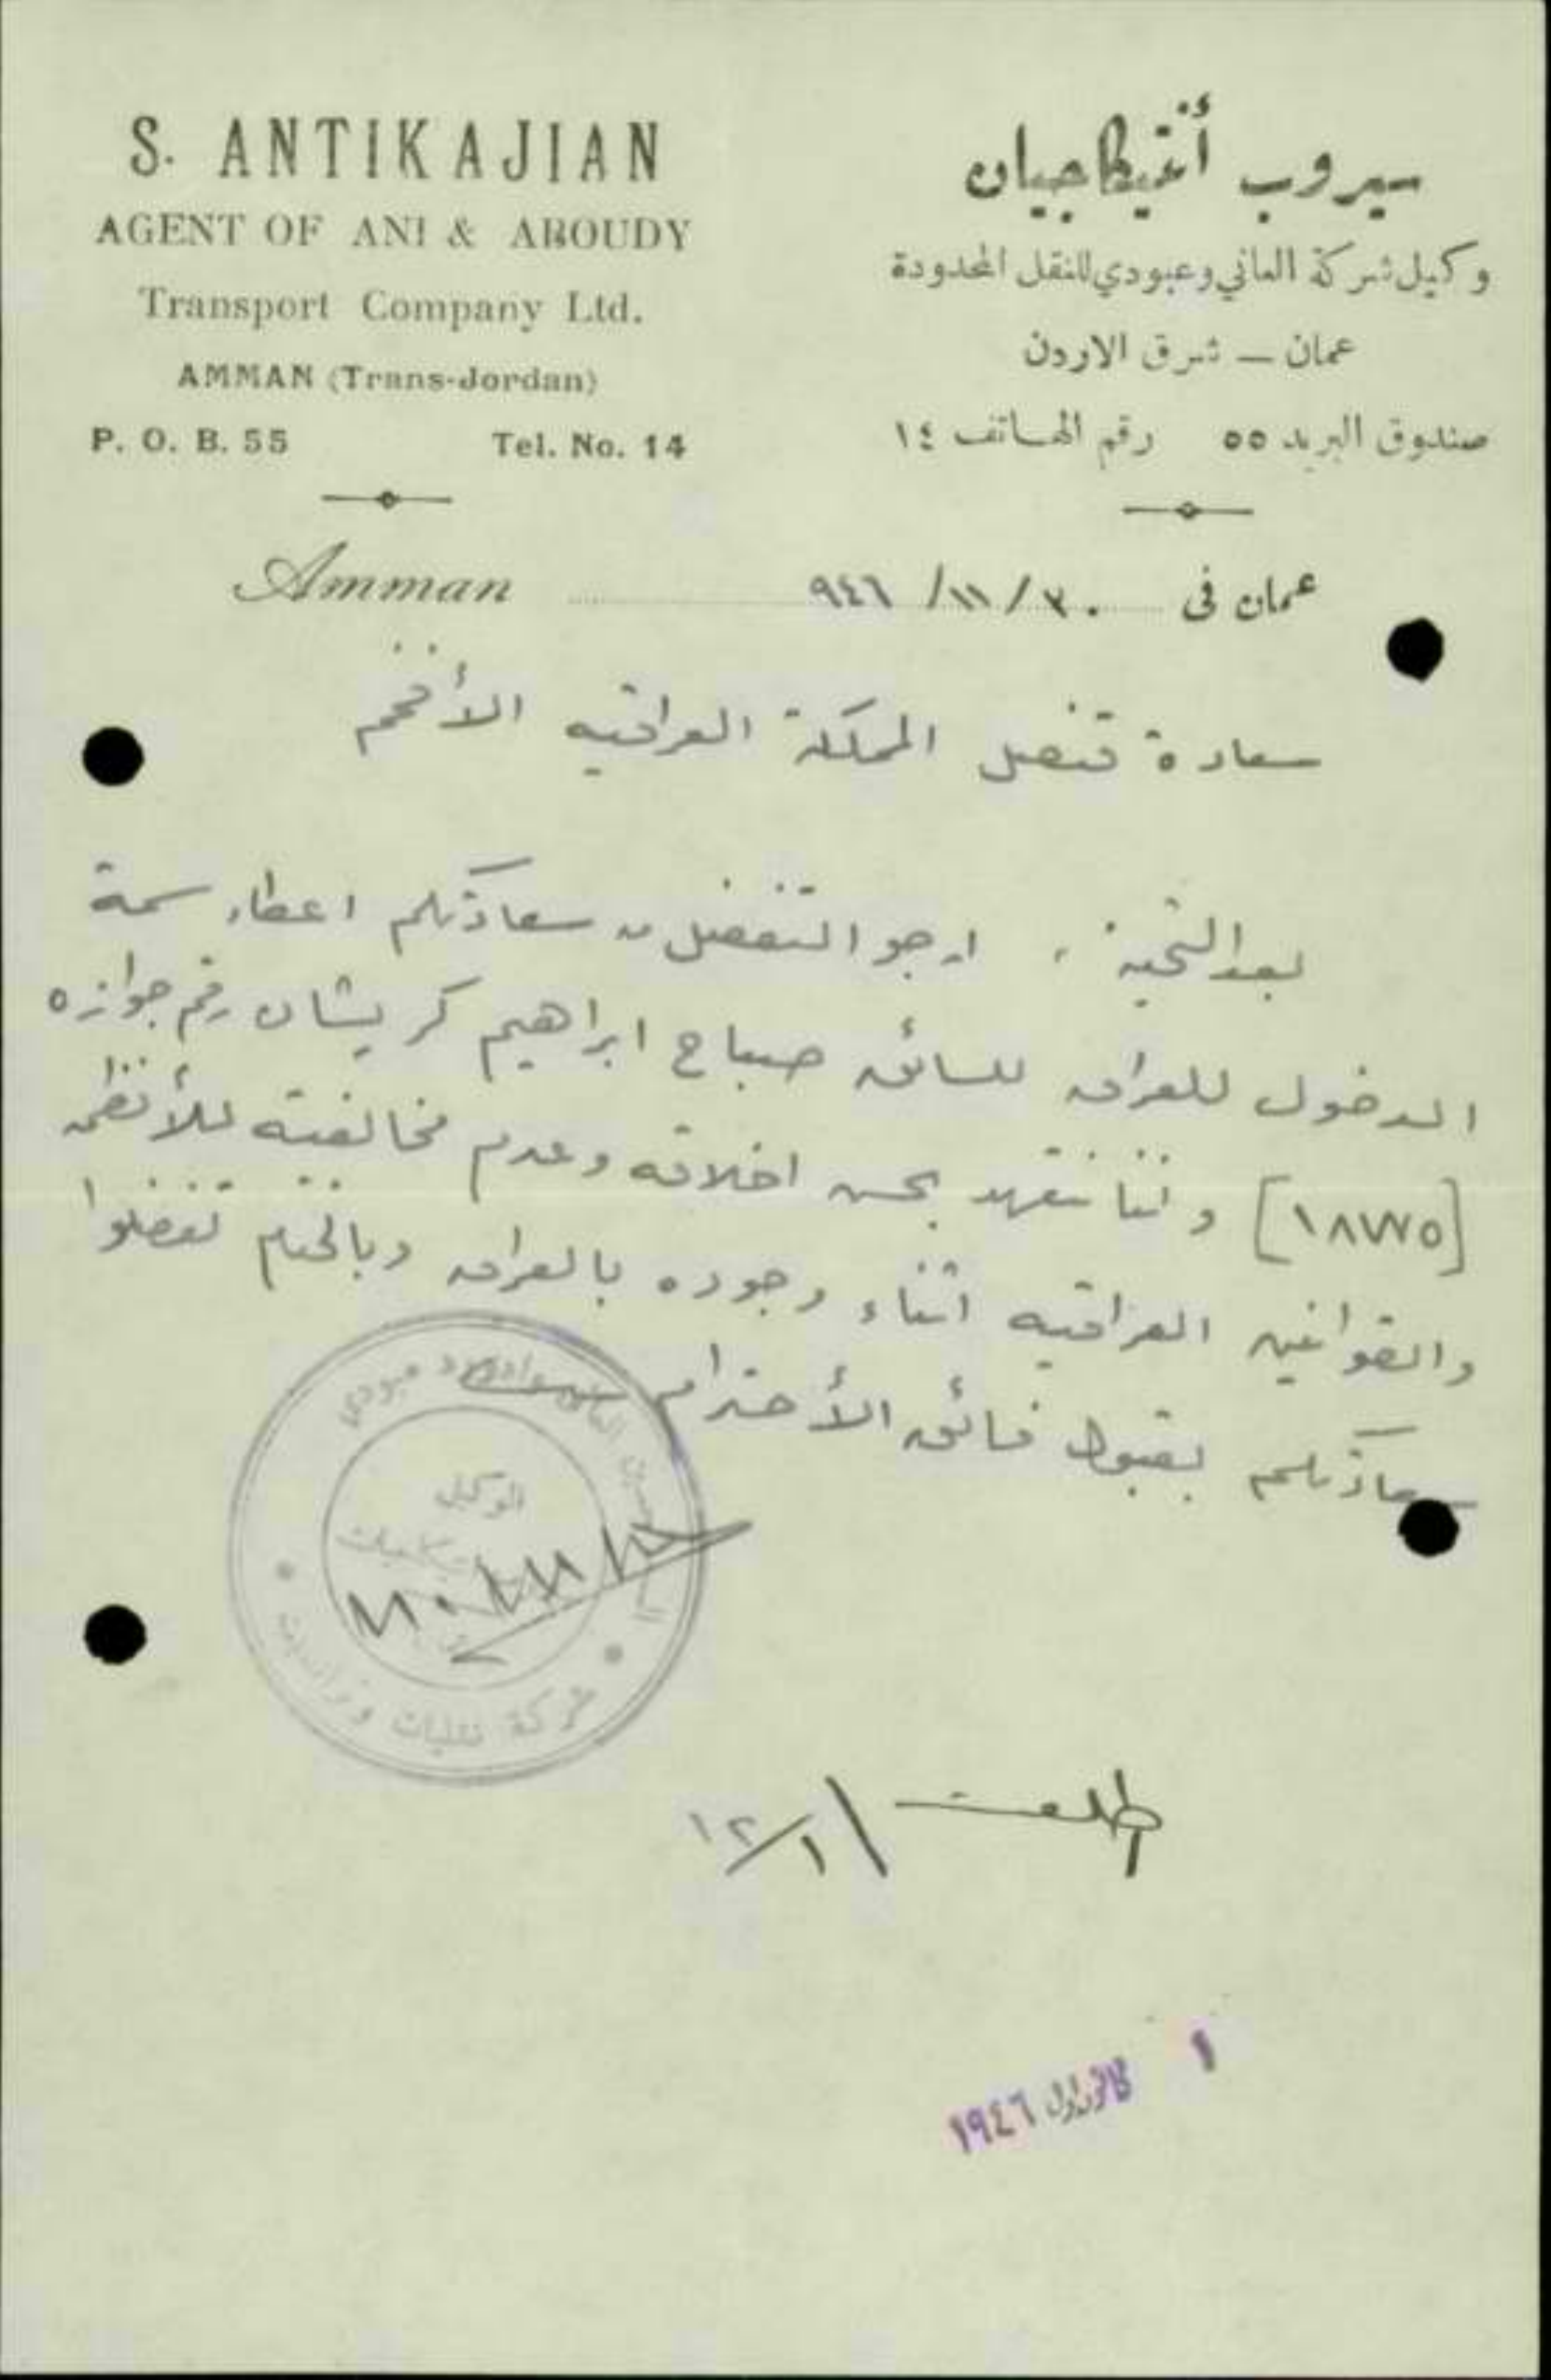 S. ANTIKAJIAN
AGENT OF ANI & ABOUDY
Transport Company Ltd.
AMMAN (Trans-Jordan)
P. O. B. 55 Tel. No. 14
سيروب أنتيكاجيان
وكيل شركة العاني وعبودي للنقل المحدودة
عمان — شرق الاردن
صندوق البريد ٥٥ رقم الهاتف ١٤
Amman
عمان في ٣٠ / ١١ / ٩٤٦
سعادة قنصل المملكة العراقيه الأفخم
بعد التحية ، ارجو التفضل من سعادتكم اعطاء سمة
الدخول للعراق للسائق صباح ابراهيم كريشان رقم جوازه
[١٨٧٧٥] واننا نتعهد بحسن اخلاقه وعدم مخالفته للأنظمه
والقوانين العراقيه اثناء وجوده بالعراق وبالختام تفضلوا
سعادتكم بقبول فائق الأحترام
عبودي
الوكيل
شركة نقليات
طلعت
١/١٢
١ كانون اول ١٩٤٦